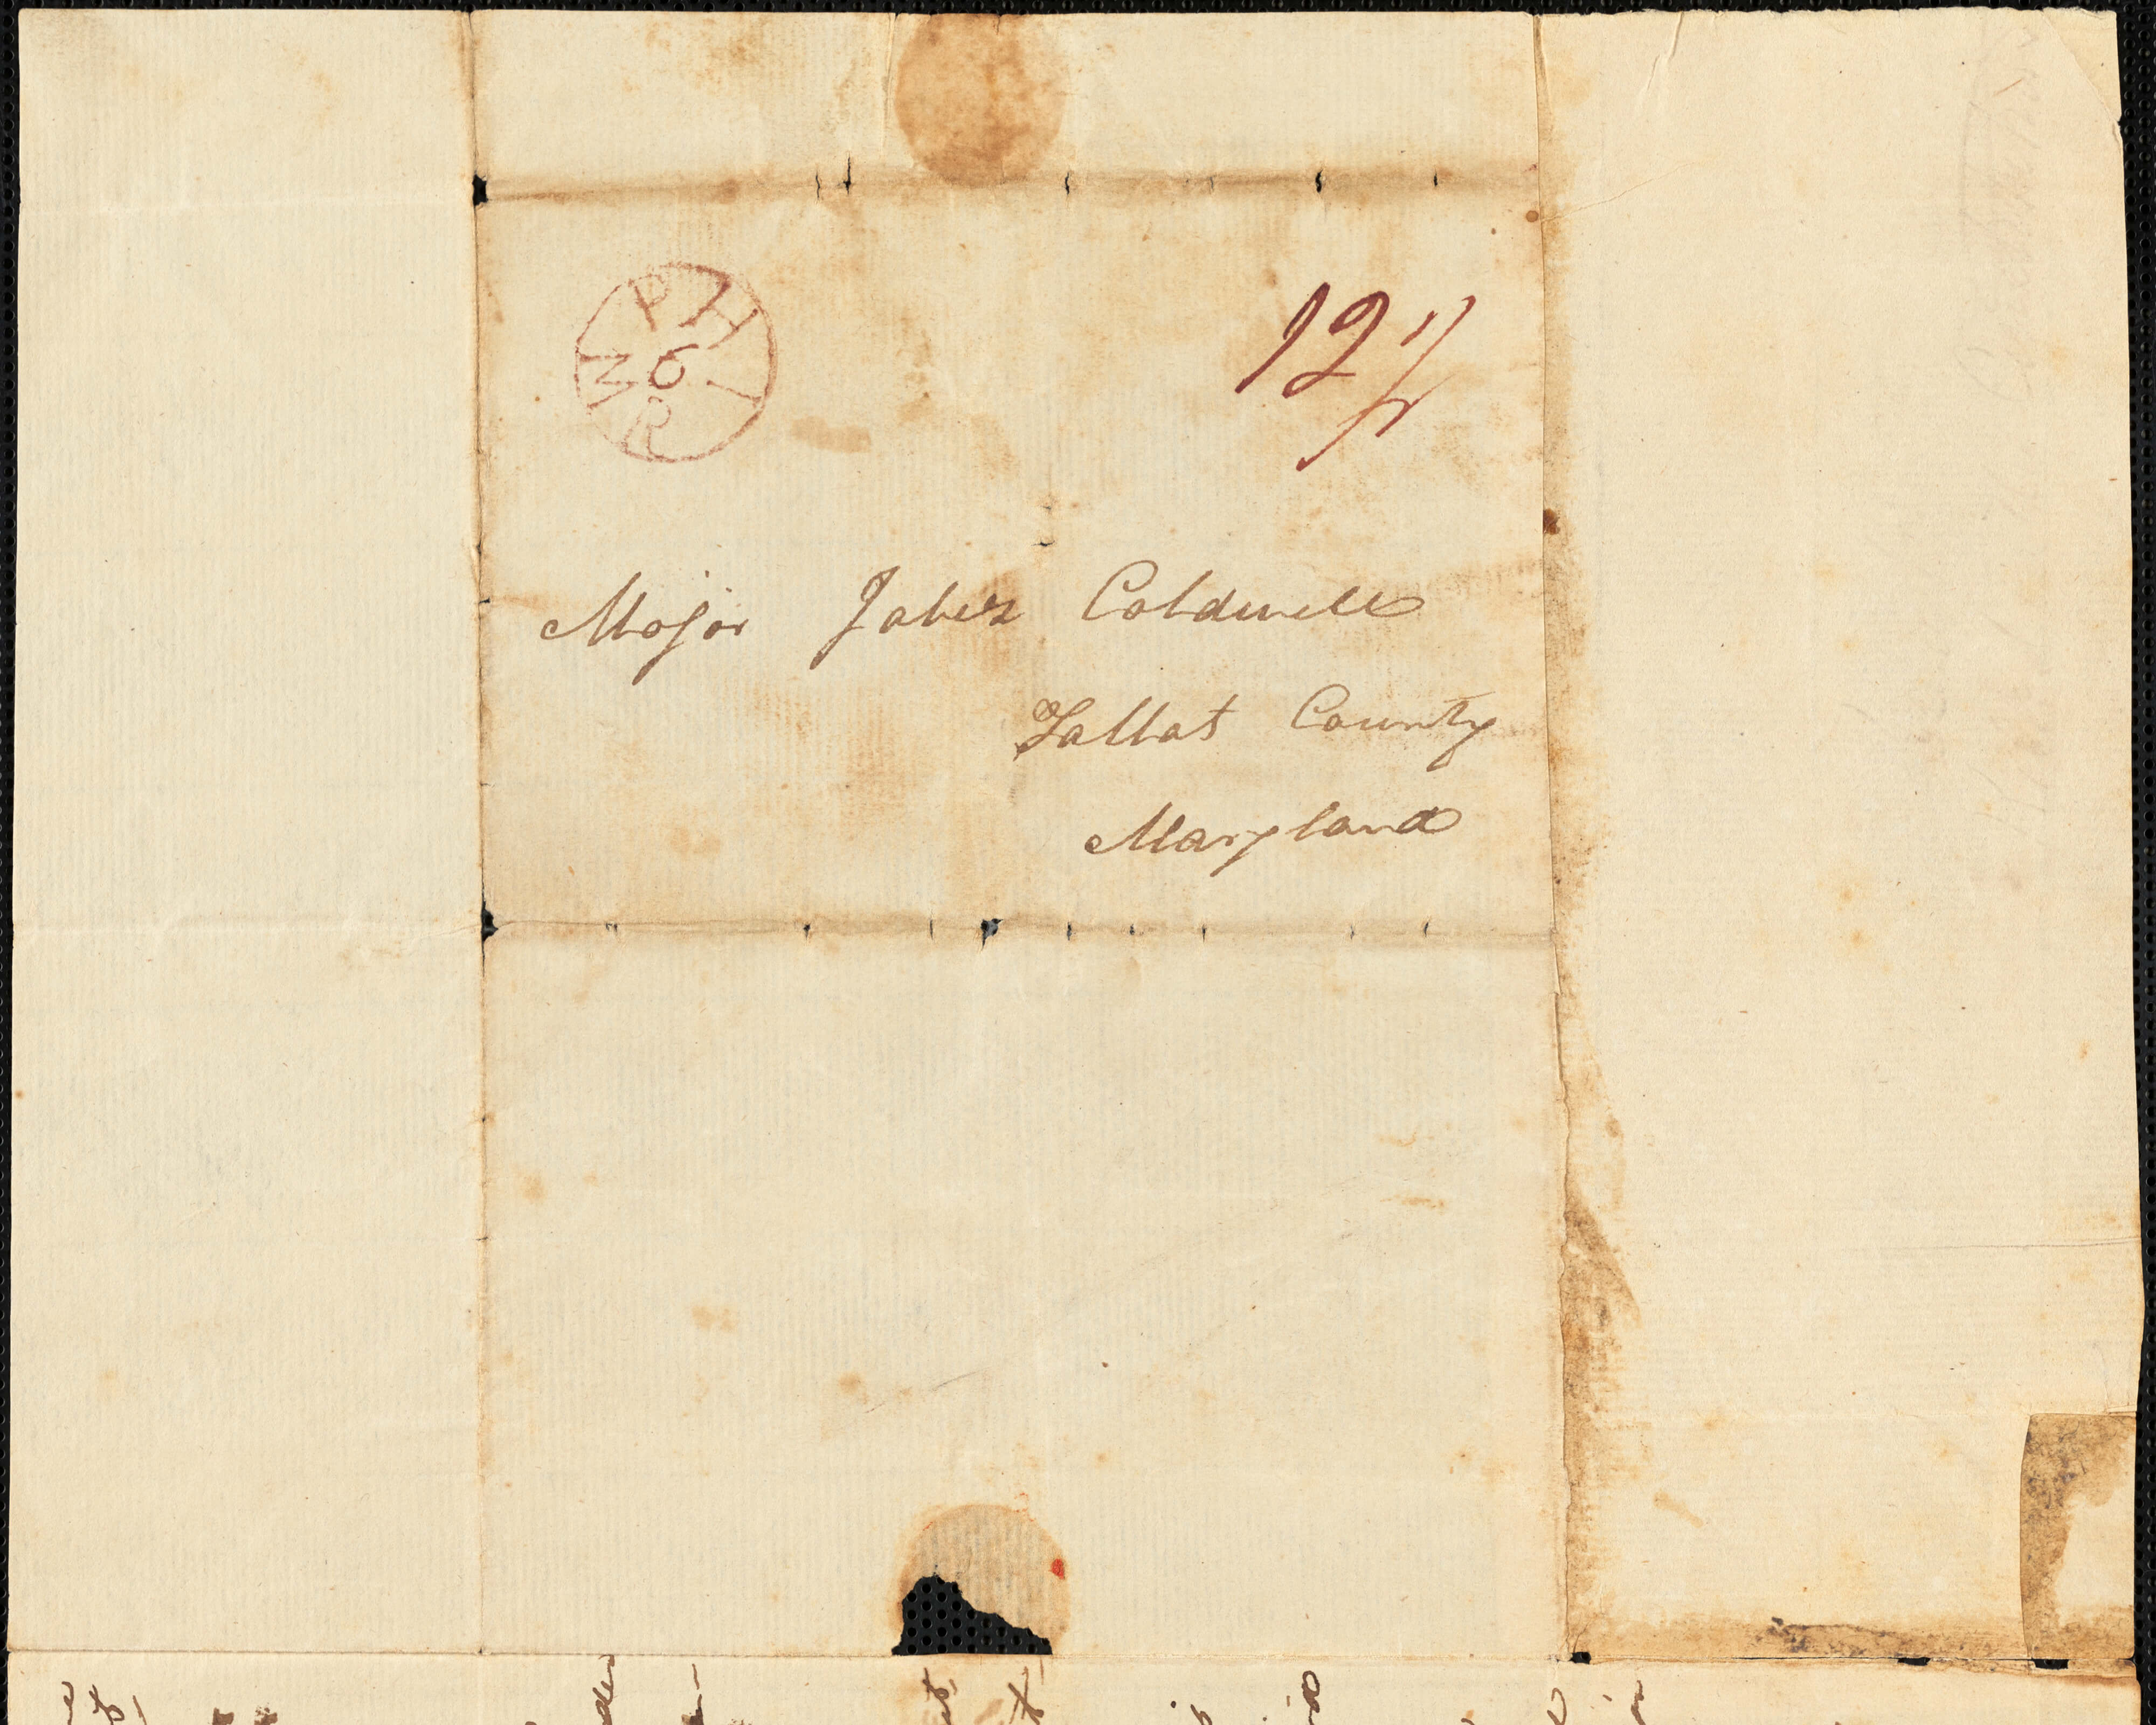 PHI
6
MR
12 1/2
Major Jabez Coldwell
Talbot County
Maryland